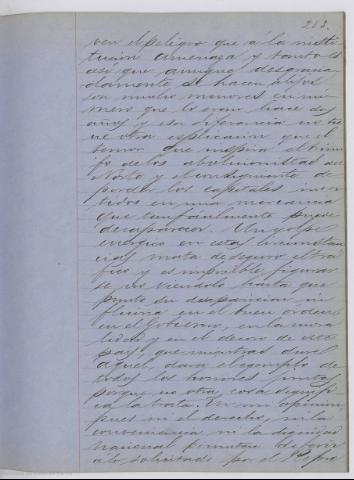 283.
ven el peligro que a la insti-
tucion amenaza y tanto es
asi que aunque desgracia-
damente se hacen alijos
son mucho menores en nú-
mero que lo eran hace dos
años y esta diferencia no tie-
ne otra esplicacion que el
temor que inspira el triun-
fo de los abolicionistas del
Norte y el consiguiente de
perder los capitales inver-
tidos en una mercancia
que tan facilmente puede
desaparecer. Un golpe
energico en estas circunstan-
cias mata de seguro el trá-
fico y es imposible figurar-
se no viendolo hasta que
punto su desaparicion in-
fluiria en el buen orden
en el Gobierno, en la mora-
lidad y en el decoro de este
pais, que mientras dure
aquel, dara el ejemplo de
todos los horrores juntos
porque no otra cosa signifi-
ca la trata. En mi opinion,
pues ni el derecho, ni la
conveniencia ni la dignidad
Nacional permiten
a lo solicitado por el